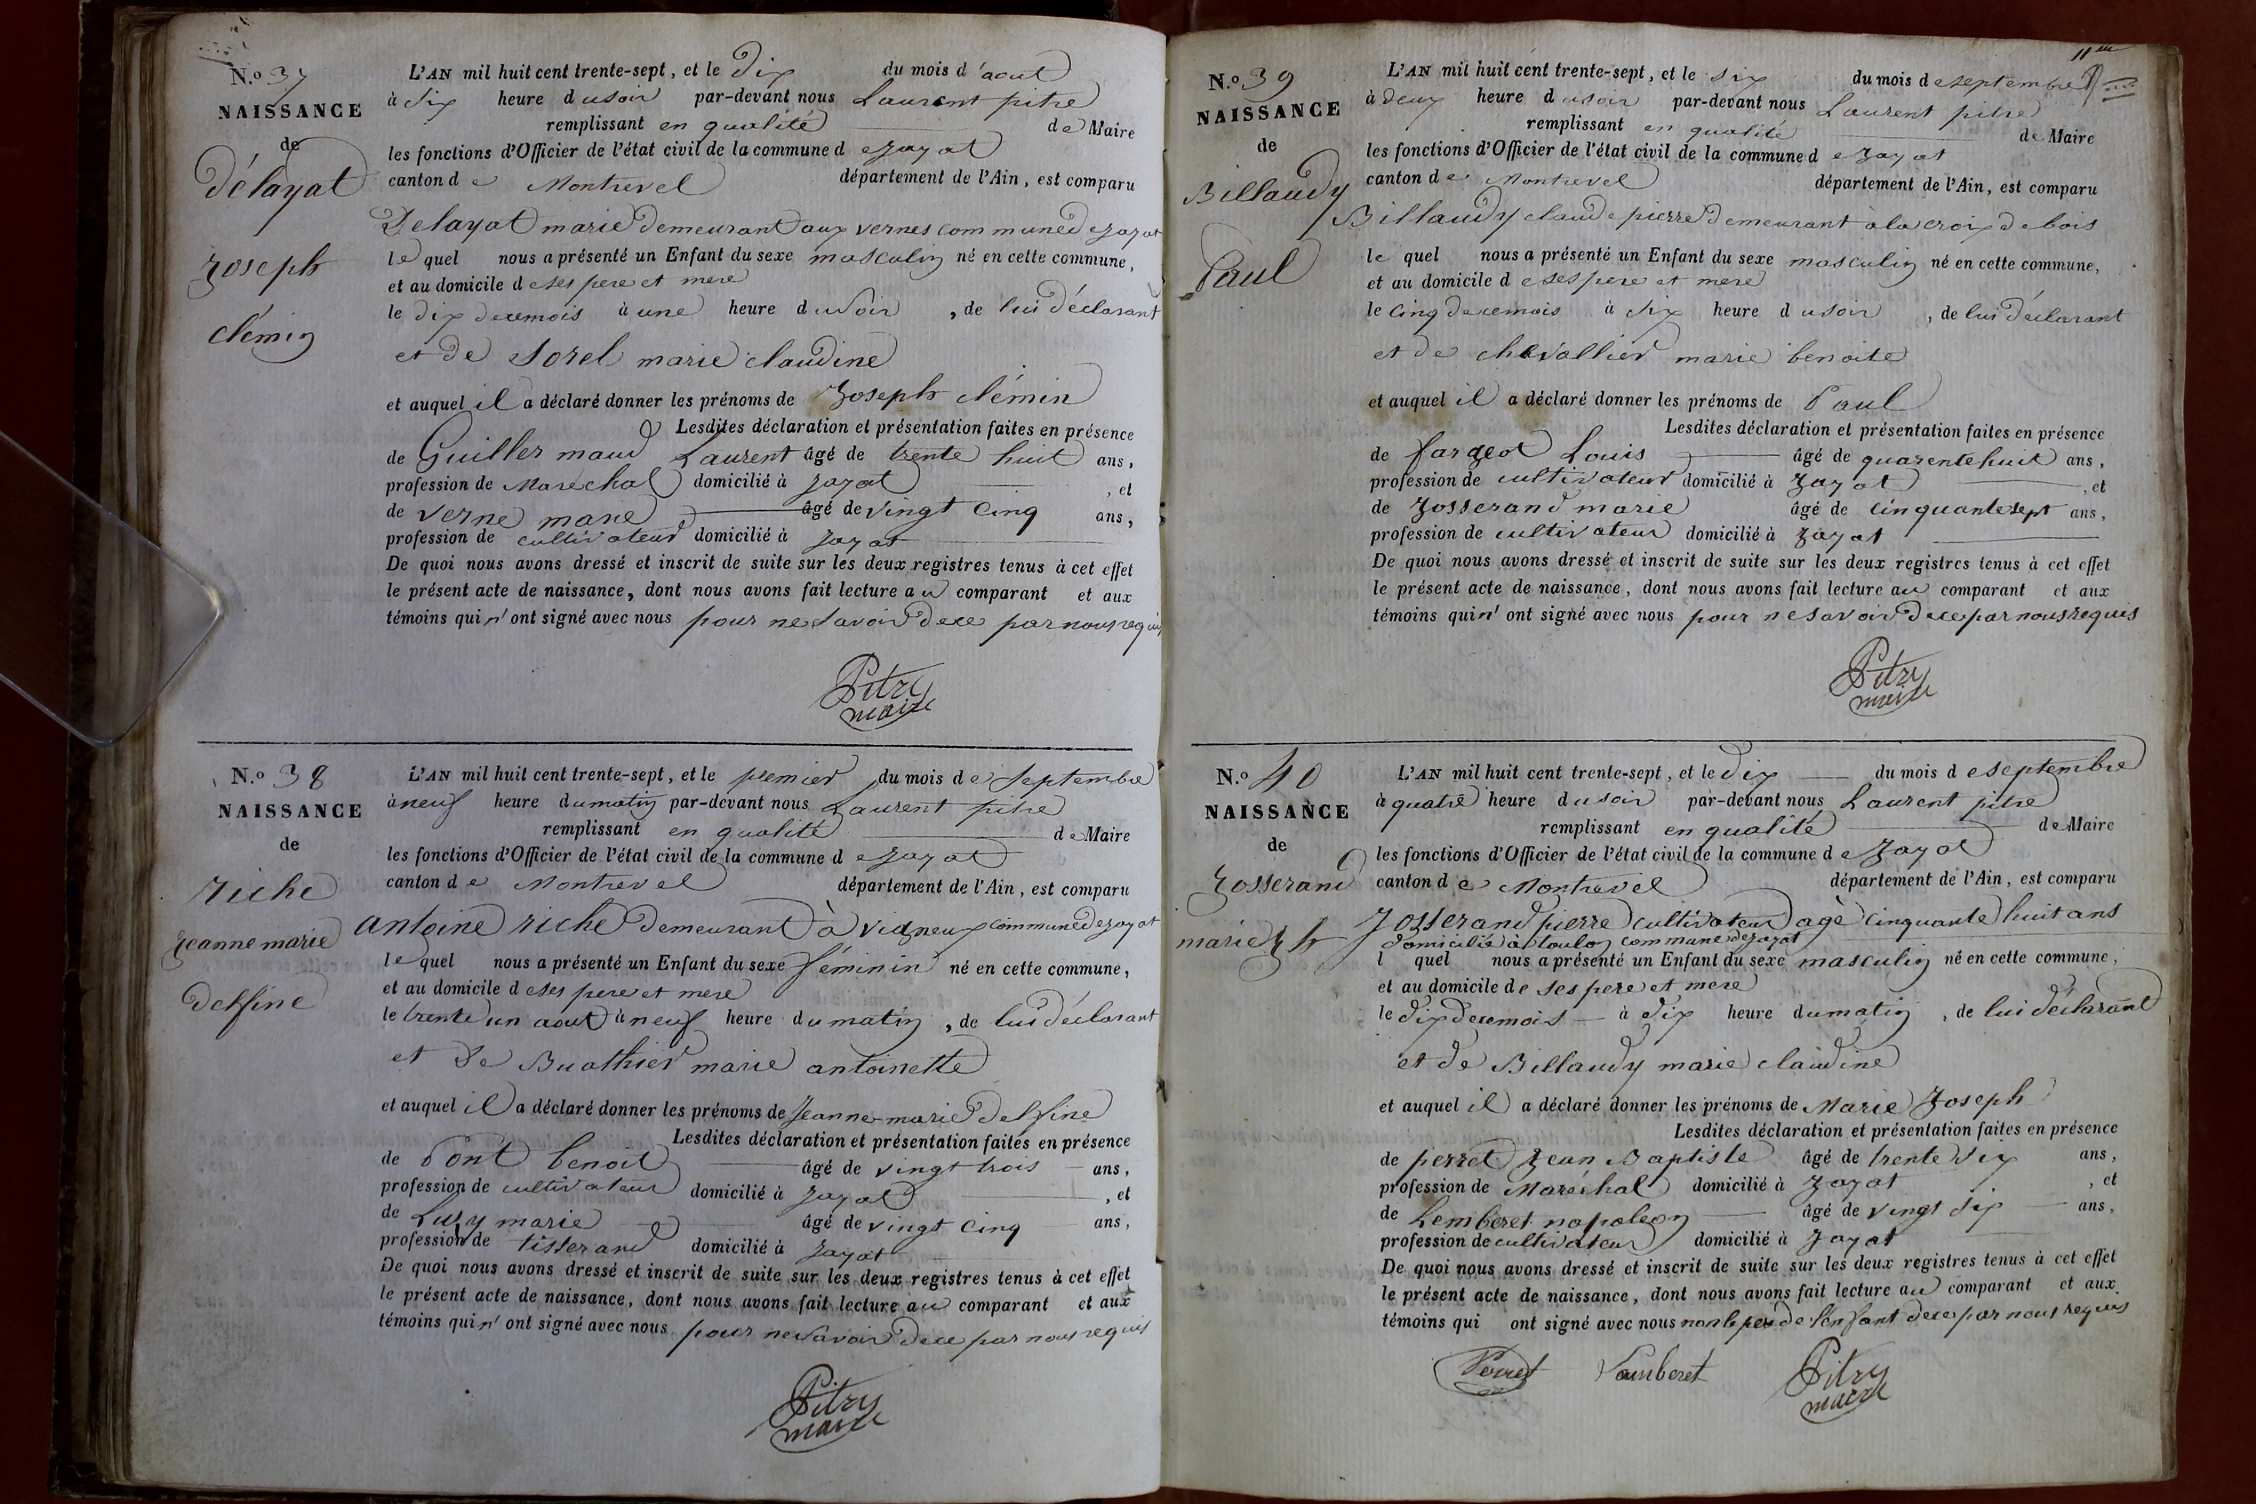 N.o 37
NAISSANCE
de
délayat
Joseph
clémin
L'AN mil huit cent trente-sept, et le dix du mois d'aout
à six heure du soir par-devant nous Laurent pitre
remplissant en qualité de Maire
les fonctions d'Officier de l'état civil de la commune de Jayat
canton de Montrevel département de l'Ain, est comparu
Delayat marie demeurant aux vernes commune de Jayat
lequel nous a présenté un Enfant du sexe masculin né en cette commune,
et au domicile de ses pere et mere
le dix de ce mois à une heure du soir, de lui déclarant
et de Sorel marie claudine
et auquel il a déclaré donner les prénoms de Joseph clémin
Lesdites déclaration et présentation faites en présence
de Guillermaud Laurent âgé de trente huit ans,
profession de Maréchal domicilié à Jayat, et
de verne marie âgé de vingt cinq ans,
profession de cultivateur domicilié à Jayat
De quoi nous avons dressé et inscrit de suite sur les deux registres tenus à cet effet
le présent acte de naissance, dont nous avons fait lecture au comparant et aux
témoins qui n'ont signé avec nous pour ne savoir de ce par nous requis
Pitre
maire
N.o 38
NAISSANCE
de
riche
Jeanne marie
delfine
L'AN mil huit cent trente-sept, et le premier du mois de Septembre
à neuf heure du matin par-devant nous Laurent pitre
remplissant en qualité de Maire
les fonctions d'Officier de l'état civil de la commune de Jayat
canton de Montrevel département de l'Ain, est comparu
antoine riche demeurant à vigneux commune de Jayat
lequel nous a présenté un Enfant du sexe féminin né en cette commune,
et au domicile de ses pere et mere
le trente un aout à neuf heure du matin, de lui déclarant
et de Buathier marie antoinette
et auquel il a déclaré donner les prénoms de Jeanne-marie delfine
Lesdites déclaration et présentation faites en présence
de Pont benoit âgé de vingt trois ans,
profession de cultivateur domicilié à Jayat, et
de Luzy marie âgé de vingt cinq ans,
profession de tisserand domicilié à Jayat
De quoi nous avons dressé et inscrit de suite sur les deux registres tenus à cet effet
le présent acte de naissance, dont nous avons fait lecture au comparant et aux
témoins qui n'ont signé avec nous pour ne savoir de ce par nous requis
Pitre
maire
11me
N.o 39
NAISSANCE
de
Billaudy
Paul
L'AN mil huit cent trente-sept, et le six du mois de septembre
à deux heure du soir par-devant nous Laurent pitre
remplissant en qualité de Maire
les fonctions d'Officier de l'état civil de la commune de Jayat
canton de Montrevel département de l'Ain, est comparu
Billaudy claude pierre demeurant à la croix de bois
lequel nous a présenté un Enfant du sexe masculin né en cette commune,
et au domicile de ses pere et mere
le cinq de ce mois à six heure du soir, de lui déclarant
et de chevallier marie benoite
et auquel il a déclaré donner les prénoms de Paul
Lesdites déclaration et présentation faites en présence
de fargeot Louis âgé de quarente huit ans,
profession de cultivateur domicilié à Jayat, et
de Josserand marie âgé de cinquante sept ans,
profession de cultivateur domicilié à Jayat
De quoi nous avons dressé et inscrit de suite sur les deux registres tenus à cet effet
le présent acte de naissance, dont nous avons fait lecture au comparant et aux
témoins qui n'ont signé avec nous pour ne savoir de ce par nous requis
Pitre
maire
N.o 40
NAISSANCE
de
Josserand
marie Jh
L'AN mil huit cent trente-sept, et le dix du mois de septembre
à quatre heure du soir par-devant nous Laurent pitre
remplissant en qualité de Maire
les fonctions d'Officier de l'état civil de la commune de Jayat
canton de Montrevel département de l'Ain, est comparu
Josserand pierre cultivateur agé cinquante huit ans
domicilié à toulon commune de Jayat
l quel nous a présenté un Enfant du sexe masculin né en cette commune,
et au domicile de ses pere et mere
le dix de ce mois à dix heure du matin, de lui déclarant
et de Billaudy marie claudine
et auquel il a déclaré donner les prénoms de Marie Joseph
Lesdites déclaration et présentation faites en présence
de perret Jean Baptiste âgé de trente six ans,
profession de Maréchal domicilié à Jayat, et
de Lemberet napoleon âgé de vingt six ans,
profession de cultivateur domicilié à Jayat
De quoi nous avons dressé et inscrit de suite sur les deux registres tenus à cet effet
le présent acte de naissance, dont nous avons fait lecture au comparant et aux
témoins qui ont signé avec nous non le pere de l'enfant de ce par nous requis
Perret Lamberet Pitre
maire